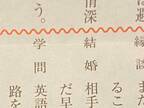 情深
う。
縁談
る
こ
結婚 相手
だ早
学問 英語
路を